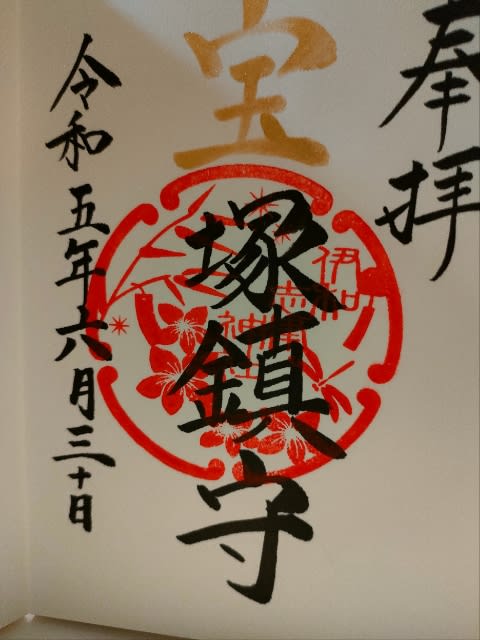 奉拝
宝
塚鎮守
伊和
志津
神社
令和五年六月三十日